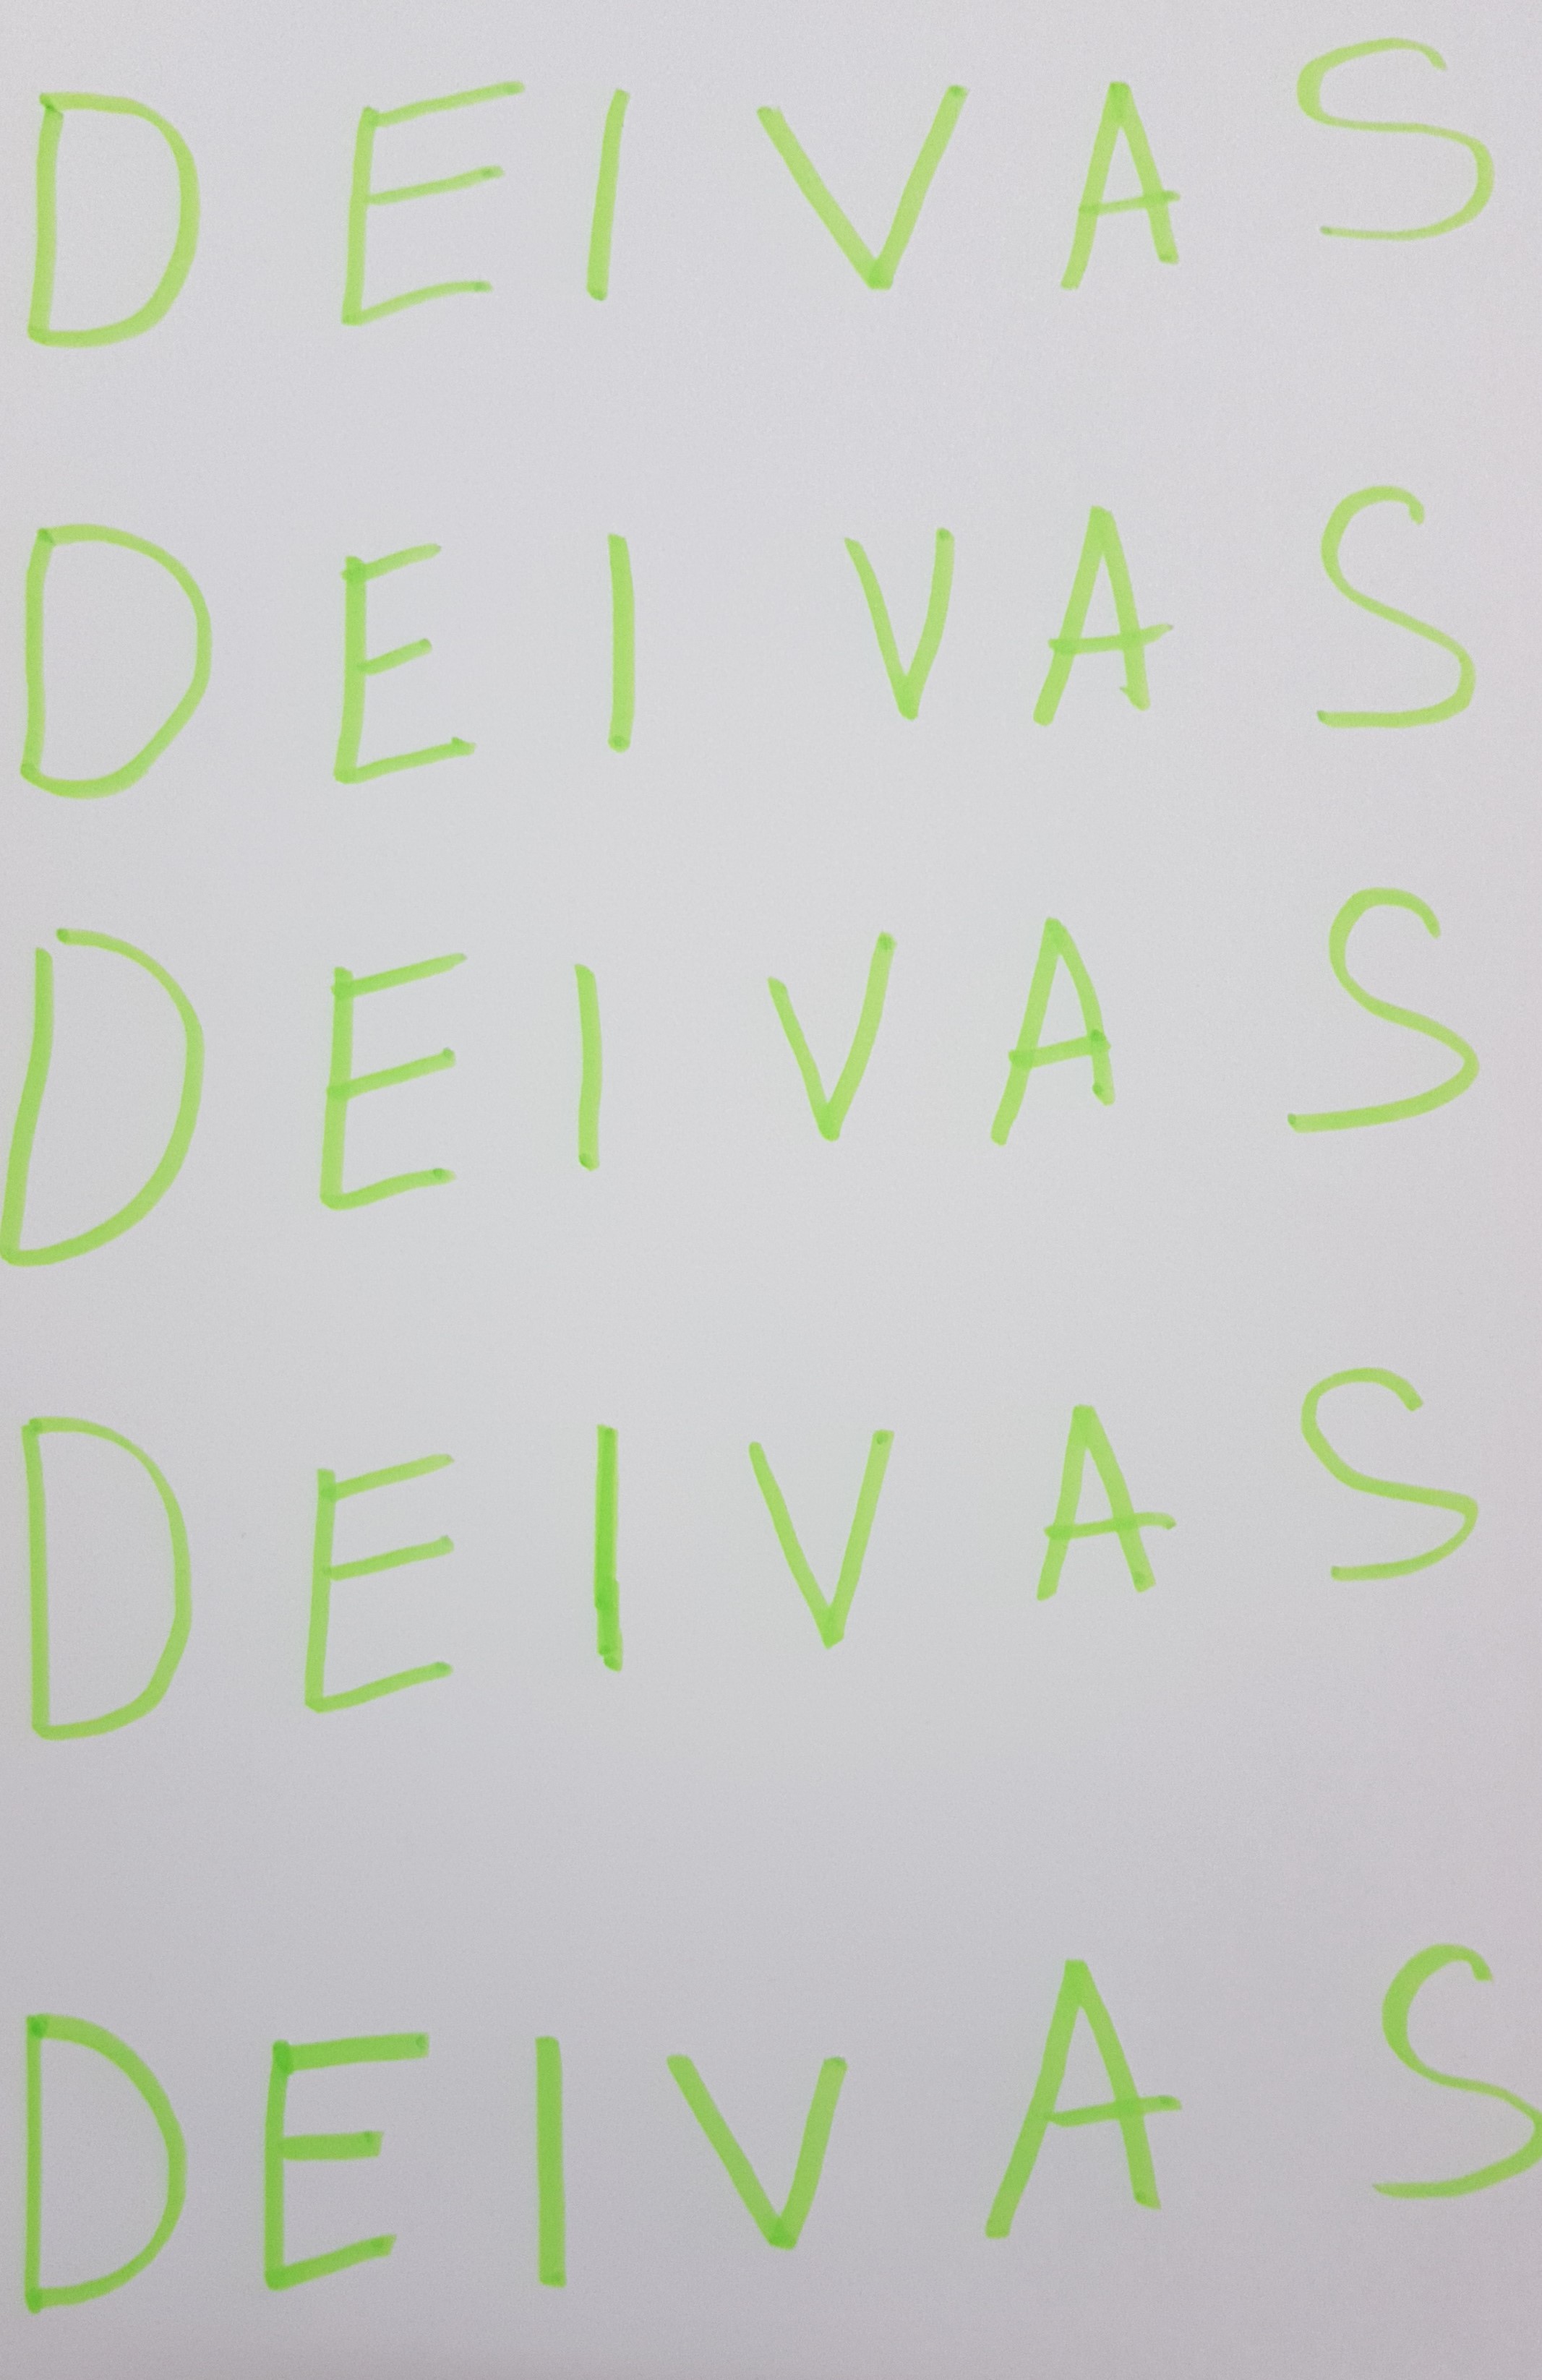 DEIVAS
DEIVAS
DEIVAS
DEIVAS
DEIVAS